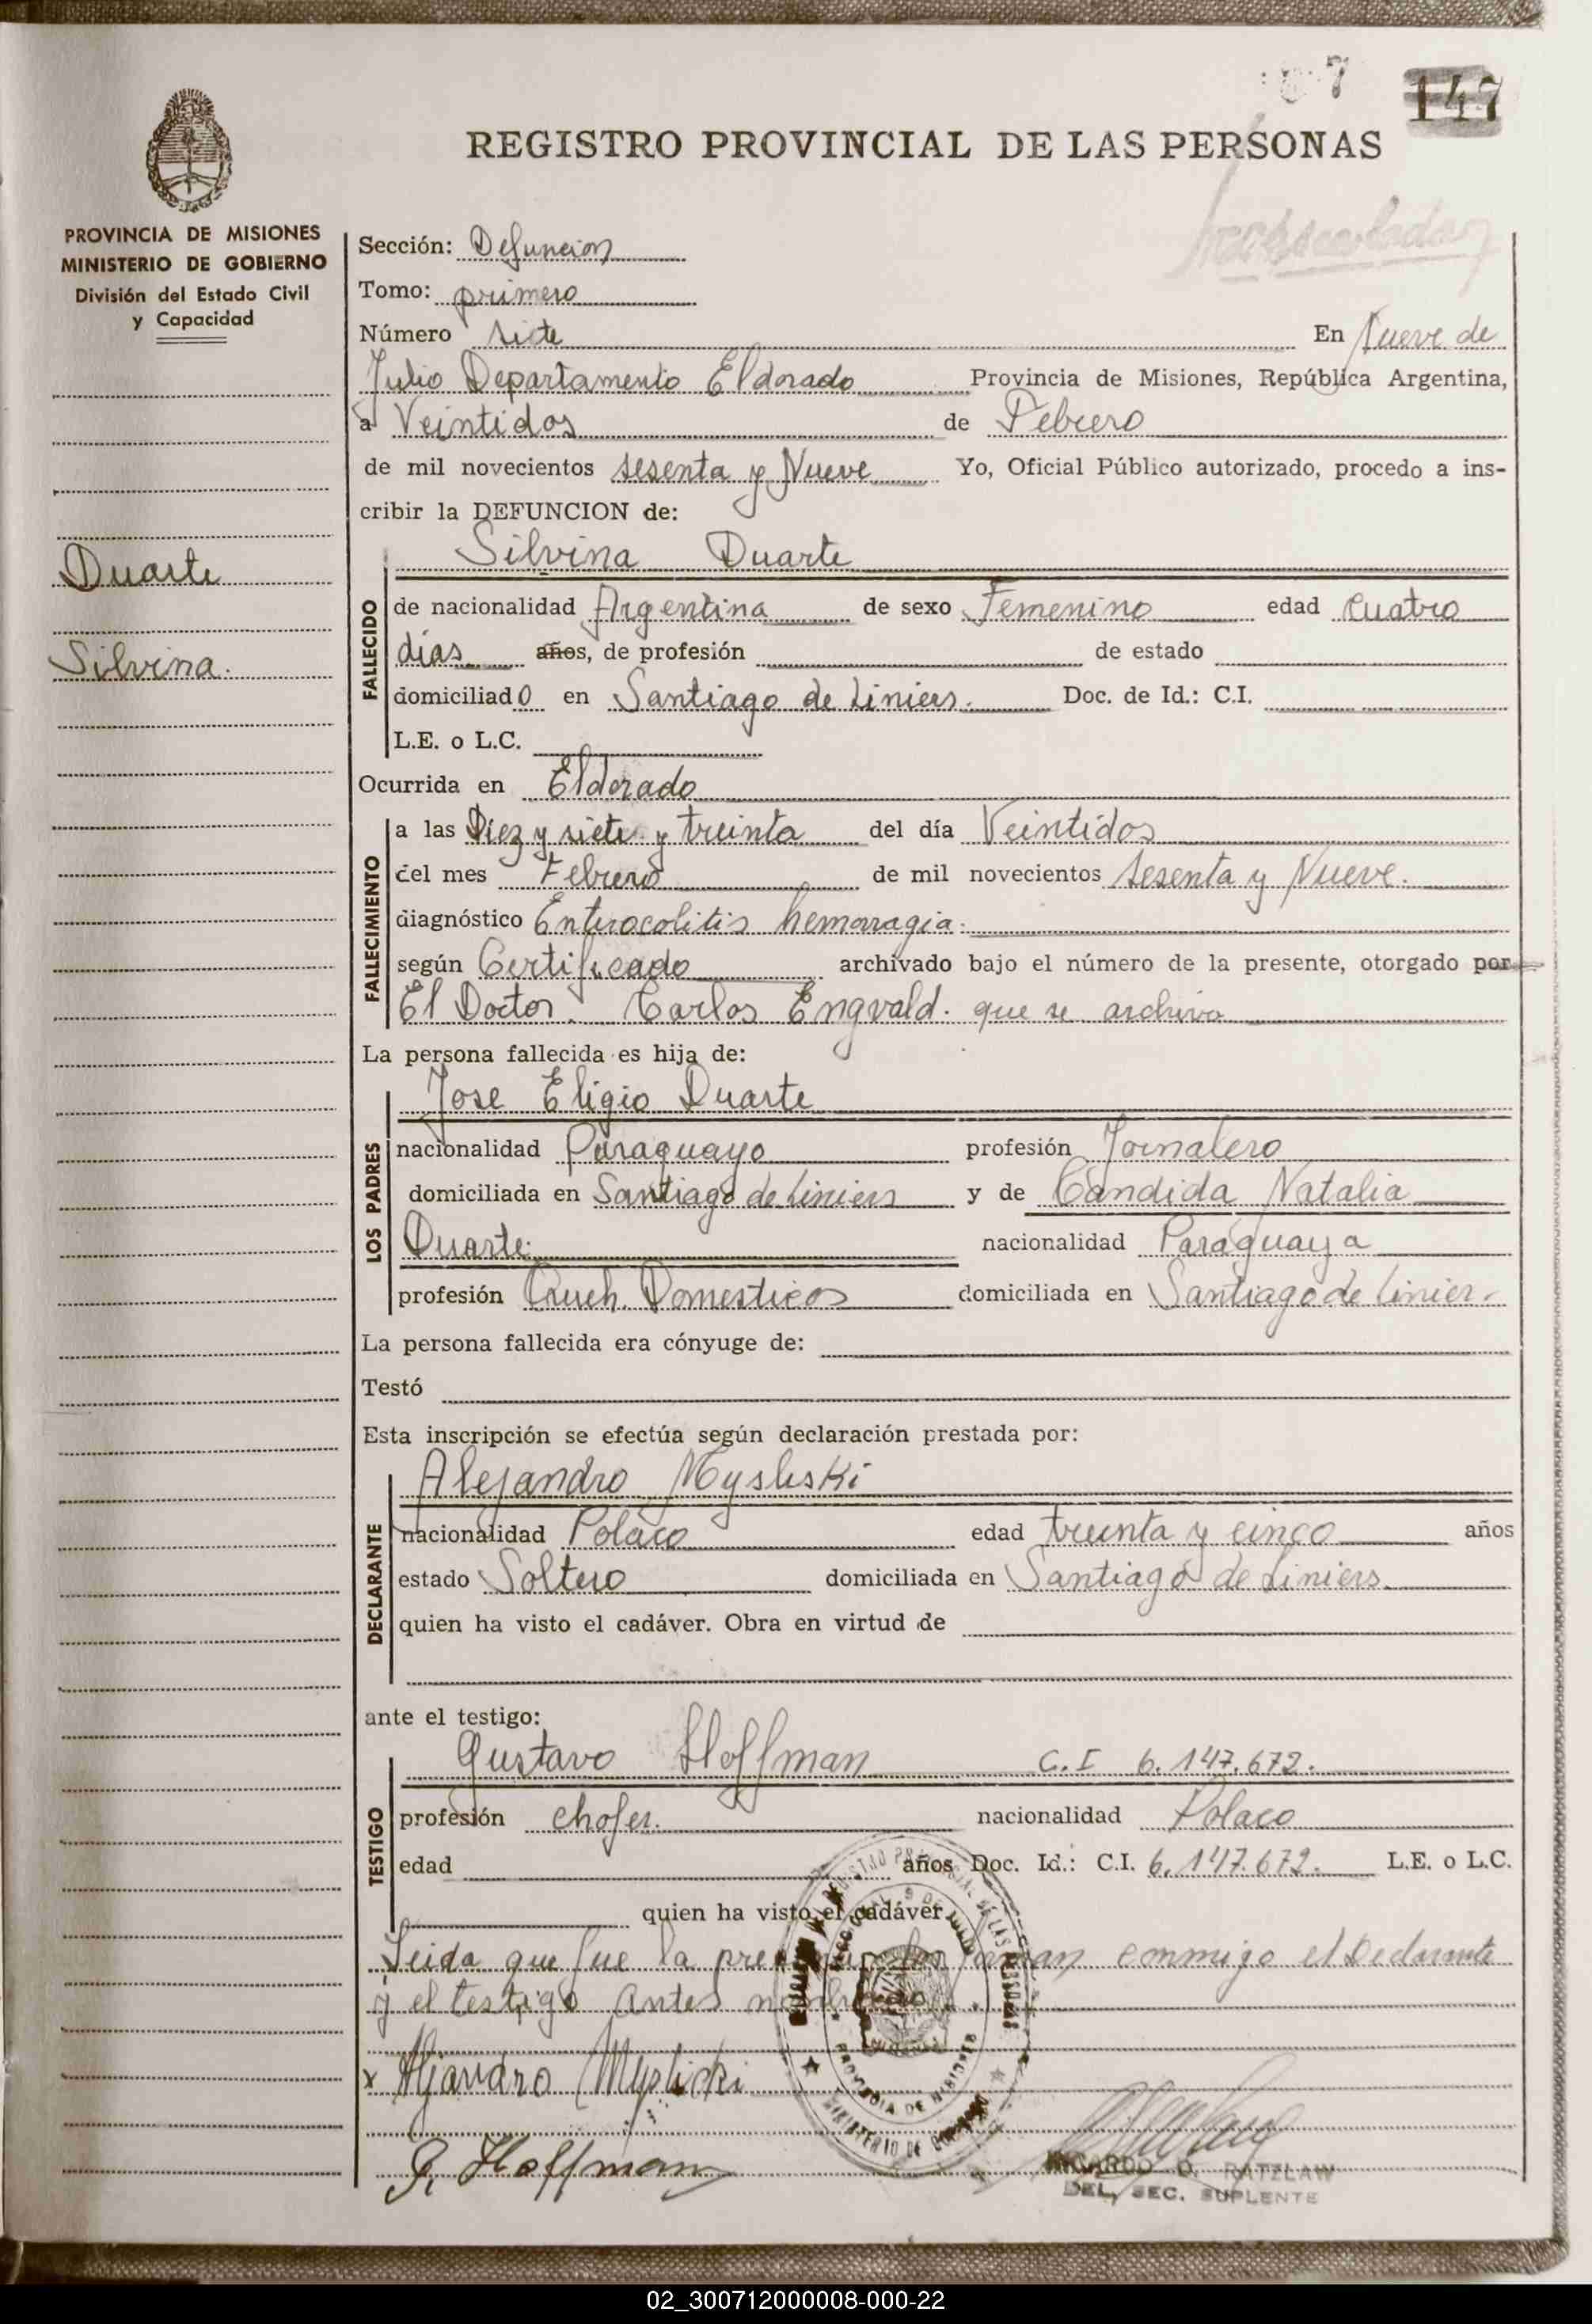 7 147
REGISTRO PROVINCIAL DE LAS PERSONAS
PROVINCIA DE MISIONES
MINISTERIO DE GOBIERNO
División del Estado Civil
y Capacidad
Duarte
Silvina.
Sección: Defuncion
Tomo: primero
Número siete En Nueve de
Julio Departamento Eldorado Provincia de Misiones, República Argentina,
a Veintidos de Febrero
de mil novecientos sesenta y Nueve Yo, Oficial Público autorizado, procedo a ins-
cribir la DEFUNCION de:
Silvina Duarte
FALLECIDO
de nacionalidad Argentina de sexo Femenino edad cuatro
dias años, de profesión de estado
domiciliado en Santiago de Liniers. Doc. de Id.: C.I.
L.E. o L.C.
Ocurrida en Eldorado
FALLECIMIENTO
a las Diez y siete y treinta del día Veintidos
del mes Febrero de mil novecientos sesenta y Nueve.
diagnóstico Enterocolitis hemorragia.
según Certificado archivado bajo el número de la presente, otorgado por
El Doctor. Carlos Engvald. que se archiva
La persona fallecida es hija de:
Jose Eligio Duarte
LOS PADRES
nacionalidad Paraguayo profesión Jornalero
domiciliada en Santiago de Liniers y de Candida Natalia
Duarte. nacionalidad Paraguaya
profesión Domesticos domiciliada en Santiago de Linier.
La persona fallecida era cónyuge de:
Testó
Esta inscripción se efectúa según declaración prestada por:
Alejandro Mysliski
DECLARANTE
nacionalidad Polaco edad treinta y cinco años
estado Soltero domiciliada en Santiago de Liniers.
quien ha visto el cadáver. Obra en virtud de
ante el testigo:
Gustavo Hoffman C.I 6.147.672.
TESTIGO
profesión chofer. nacionalidad Polaco
edad años Doc. Id.: C.I. 6.147.672. L.E. o L.C.
quien ha visto el cadáver
Leida que fue la firman conmigo el Declarante
y el testigo antes nombrado.
x Aljandro Myslicki
G. Hoffman
PROVINCIA DE MISIONES
MINISTERIO DE GOBIERNO
RICARDO O. RATZLAW
DEL. SEC. SUPLENTE
02_300712000008-000-22